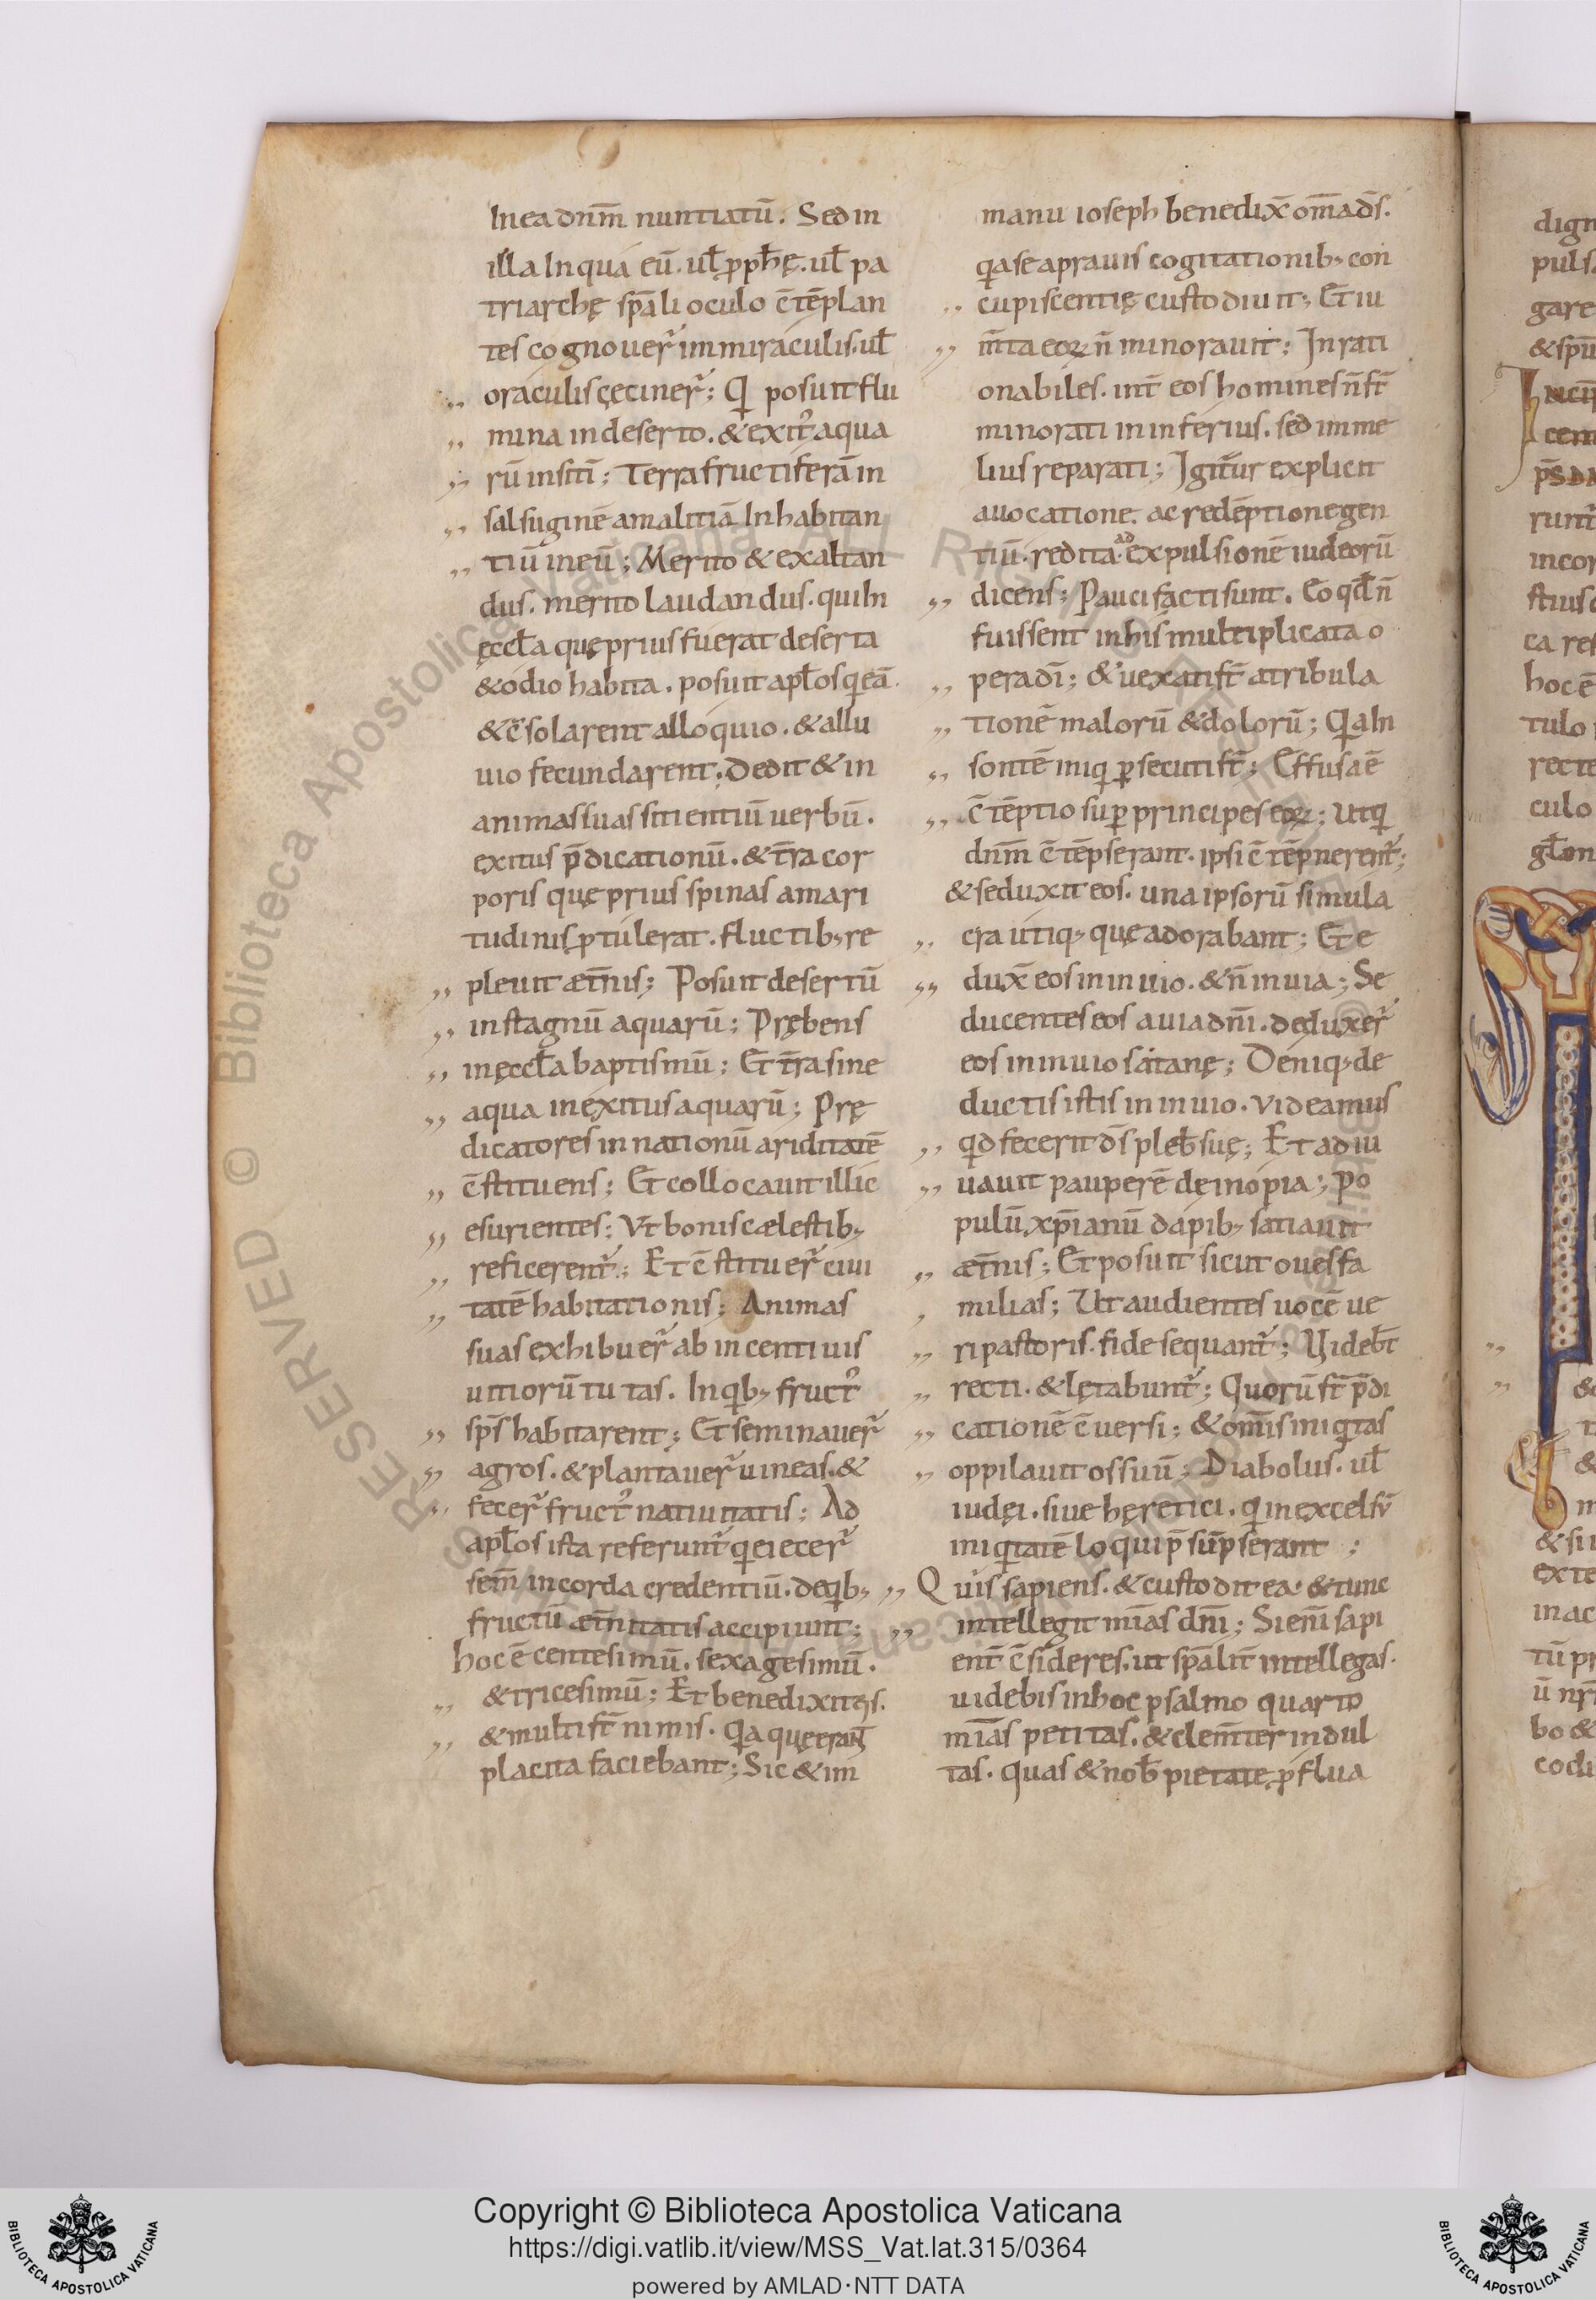 In ea dnm̄ nuntiatū. Sed in
illa In qua eū. ul̄ ꝓph̄ę. ul̄ pa
triarchę sp̄ali oculo c̄tēplan
tes cognouer̄ im miraculis. ul̄
oraculis cęciner̄; Qi posuit flu
mina in deserto. & exitꝰ aqua
rū in siti; Terra fructiferā in
salsuginē a malitiā Inhabitan
tiū in eū; Merito & exaltan
dus. merito laudandus. qui In
ęccl̄a quę prius fuerat deserta
& odio habita. posuit apl̄os qi eā
& c̄solarent alloquio. & allu
uio fecundarent; Dedit & in
animas suas sitientiū uerbū.
exitus p̄dicationū. & t̄ra cor
poris quę prius spinas amari
tudinis ꝓtulerat. fluctib; re
pleuit æt̄nis; Posuit desertū
in stagnū aquarū; Prębens
in ęccl̄a baptismū; Et t̄ra sine
aqua in exitus aquarū; Prę
dicatores in nationū ariditatē
c̄stituens; Et collocauit illic
esurientes; Vt bonis cælestib;
reficerent̄; Et c̄stituer̄ ciui
tatē habitationis; Animas
suas exhibuer̄ ab incentiuis
uitiorū tutas. In qib; fructꝰ
sp̄s habitarent; Et seminauer̄
agros. & plantauer̄ uineas. &
fecer̄ fructꝰ natiuitatis; Ad
apl̄os ista referunt̄ qi eiecer̄
sem̄ in corda credentiū. de qib;
fructū æt̄nitatis accipiunt;
hoc ē centesimū. sexagesimū.
& tricesimū; Et benedixit eis.
& multi st̄ nimis. Qia quę erant
placita faciebant; Sic & im
manu ioseph benedix̄ om̄a ds̄.
qia se a prauis cogitationib; con
cupiscentię custodiuit; Et iu
m̄ta eoꝝ n̄ minorauit; Inrati
onabiles. int̄ eos homines n̄ st̄
minorati in inferius. sed im me
lius reparati; Igitur explicit
auocatione. ac redēptione gen
tiū. redit a AD expulsionē iudeorū
dicens; Pauci facti sunt. Eo qd̄ n̄
fuissent in his multiplicata o
pera dī; & uexati st̄ a tribula
tionē malorū & dolorū; Qia In
sontē iniqi ꝑsecuti st̄; Effusa ē
c̄tēptio suꝑ principes eoꝝ; Ut qi
dnm̄ c̄tēpserant. ipsi c̄tēpnerent̄;
& seduxit eos. una ipsorū simula
cra utiq; quę adorabant; Et e
dux̄ eos in inuio. & n̄ in uia; Se
ducentes eos a uia dn̄i. deduxer̄
eos in inuio satanę; Deniq; de
ductis istis in inuio. videamus
qid fecerit ds̄ pleb̄ suę; Et adiu
uauit pauperē de inopia; Po
pulū xp̄ianū dapib; satiauit
æt̄nis; Et posuit sicut oues fa
milias; Ut audientes uocē ue
ri pastoris. fide sequant̄; Videb̄t
recti. & lętabunt̄; Quorū st̄ p̄di
cationē c̄uersi; & om̄is iniqitas
oppilauit os suū; Diabolus. ul̄
iudęi. siue hęretici. qi in excelsū
iniqitatē loqui p̄sūpserant;
Quis sapiens. & custodit ea. & tunc
intellegit m̄ias dn̄i; Si eni sapi
ent̄ c̄sideres. ut sp̄alit̄ intellegas.
uidebis in hoc psalmo quarto
m̄ias petitas. & clem̄ter indul
tas. quas & nob̄ pietate ꝓflua
dign
puls
gare
runt
incor
stius
ca res
hoc ē
tulo
recte
culo
Copyright © Biblioteca Apostolica Vaticana
https://digi.vatlib.it/view/MSS_Vat.lat.315/0364
powered by AMLAD·NTT DATA
BIBLIOTECA APOSTOLICA VATICANA
BIBLIOTECA APOSTOLICA VATICANA